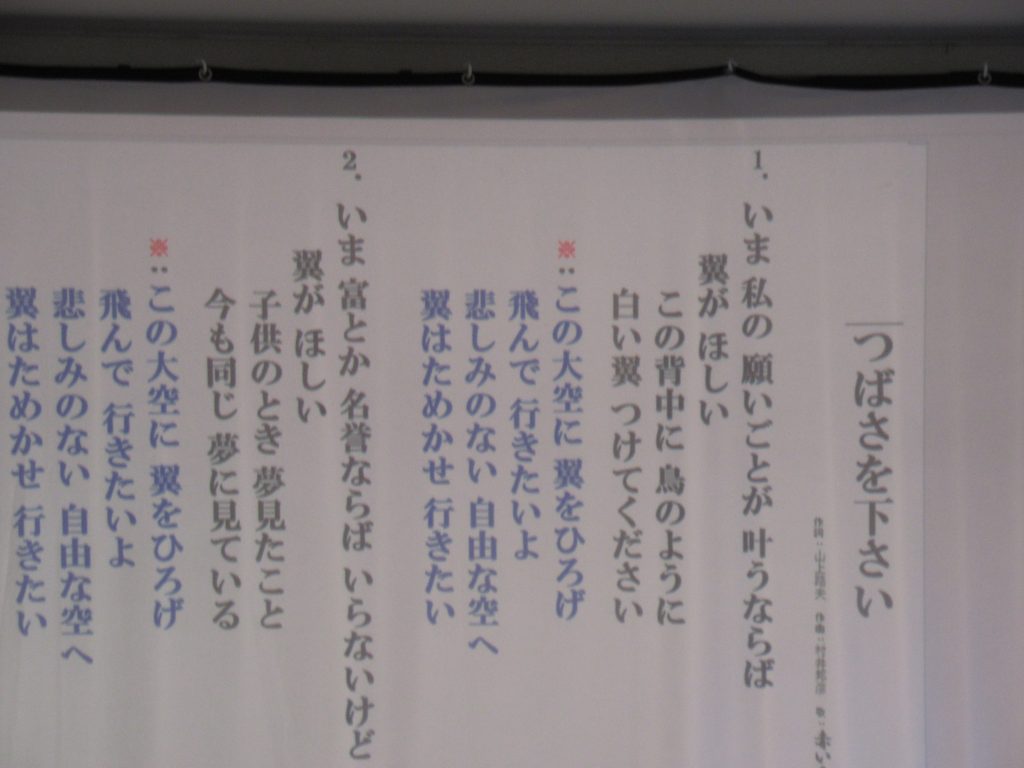 つばさを下さい
作詞：山上路夫 作曲：村井邦彦 歌：赤い
1. いま 私の 願いごとが 叶うならば
翼が ほしい
この背中に 鳥のように
白い翼 つけてください
※：この大空に 翼をひろげ
飛んで 行きたいよ
悲しみのない 自由な空へ
翼はためかせ 行きたい
2. いま 富とか 名誉ならば いらないけど
翼が ほしい
子供のとき 夢見たこと
今も同じ 夢に見ている
※：この大空に 翼をひろげ
飛んで 行きたいよ
悲しみのない 自由な空へ
翼はためかせ 行きたい